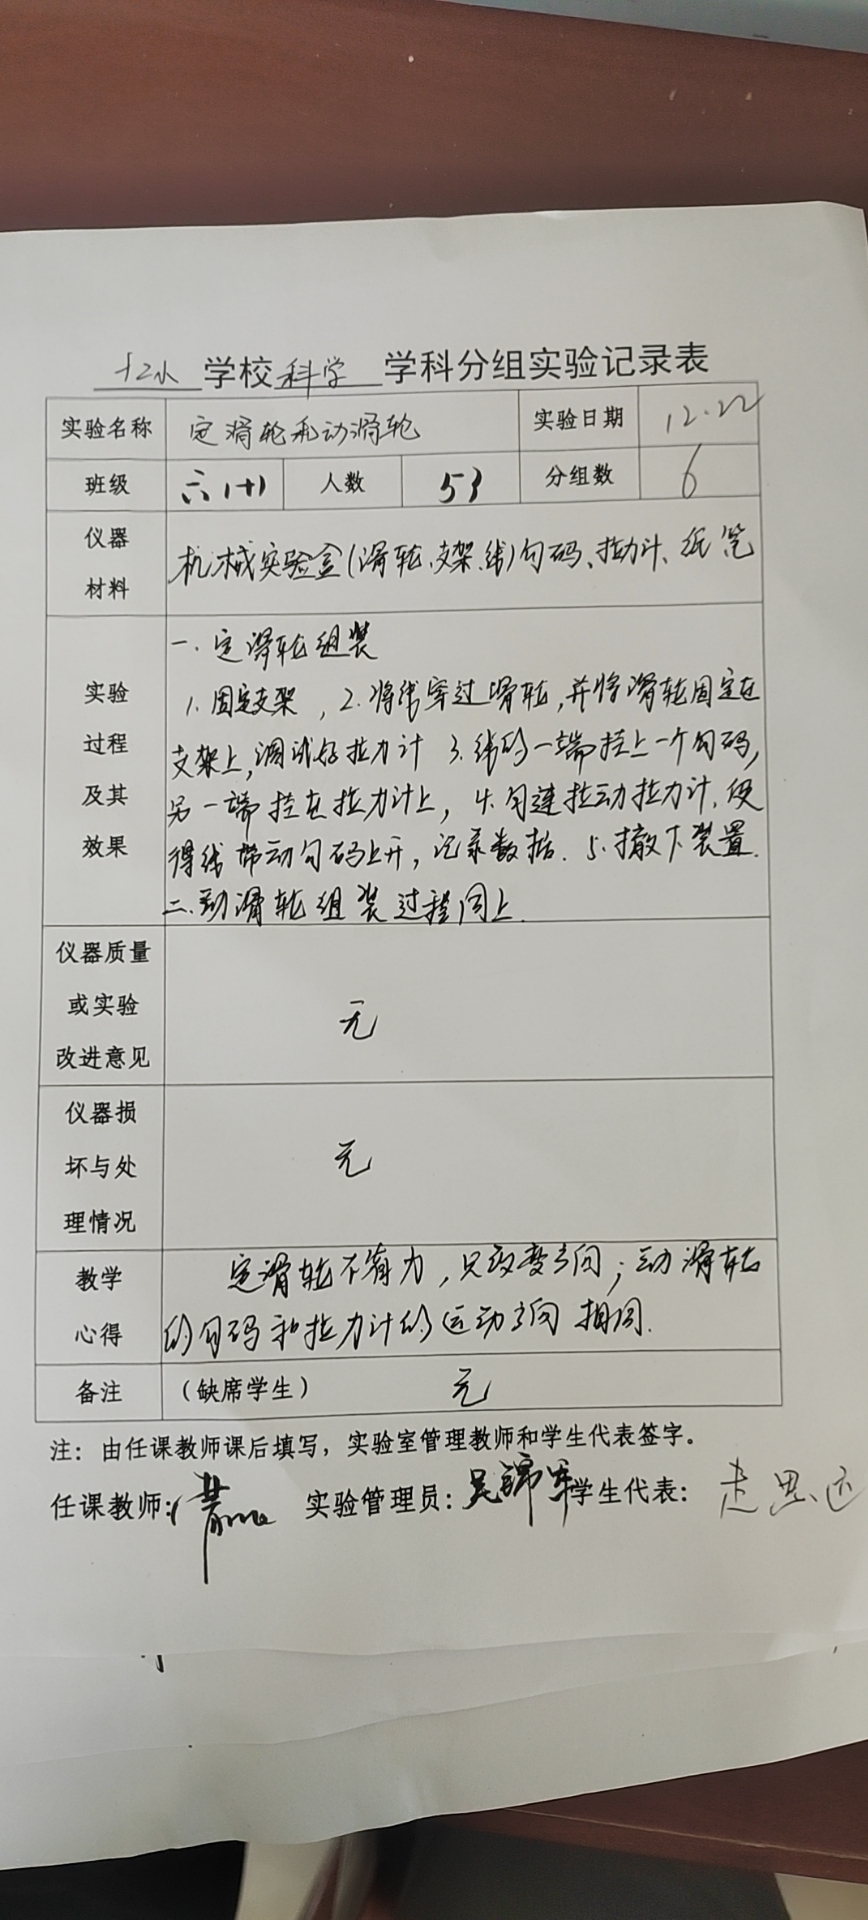 十二小 学校 科学 学科分组实验记录表
实验名称 定滑轮和动滑轮 实验日期 12.22
班级 六(十) 人数 53 分组数 6
仪器
材料
机械实验盒(滑轮、支架、线)勾码、拉力计、纸笔
实验
过程
及其
效果
一.定滑轮组装
1.固定支架，2.将线穿过滑轮,并将滑轮固定在
支架上,调试好拉力计 3.线的一端挂上一个勾码,
另一端挂在拉力计上，4.匀速拉动拉力计,使
得线带动勾码上升，记录数据.5.撤下装置.
二.动滑轮组装过程同上.
仪器质量
或实验
改进意见
无
仪器损
坏与处
理情况
无
教学
心得
定滑轮不省力，只改变方向；动滑轮
的勾码和拉力计的运动方向相同.
备注 （缺席学生） 无
注：由任课教师课后填写，实验室管理教师和学生代表签字。
任课教师: 实验管理员: 吴锦军 学生代表: 思远